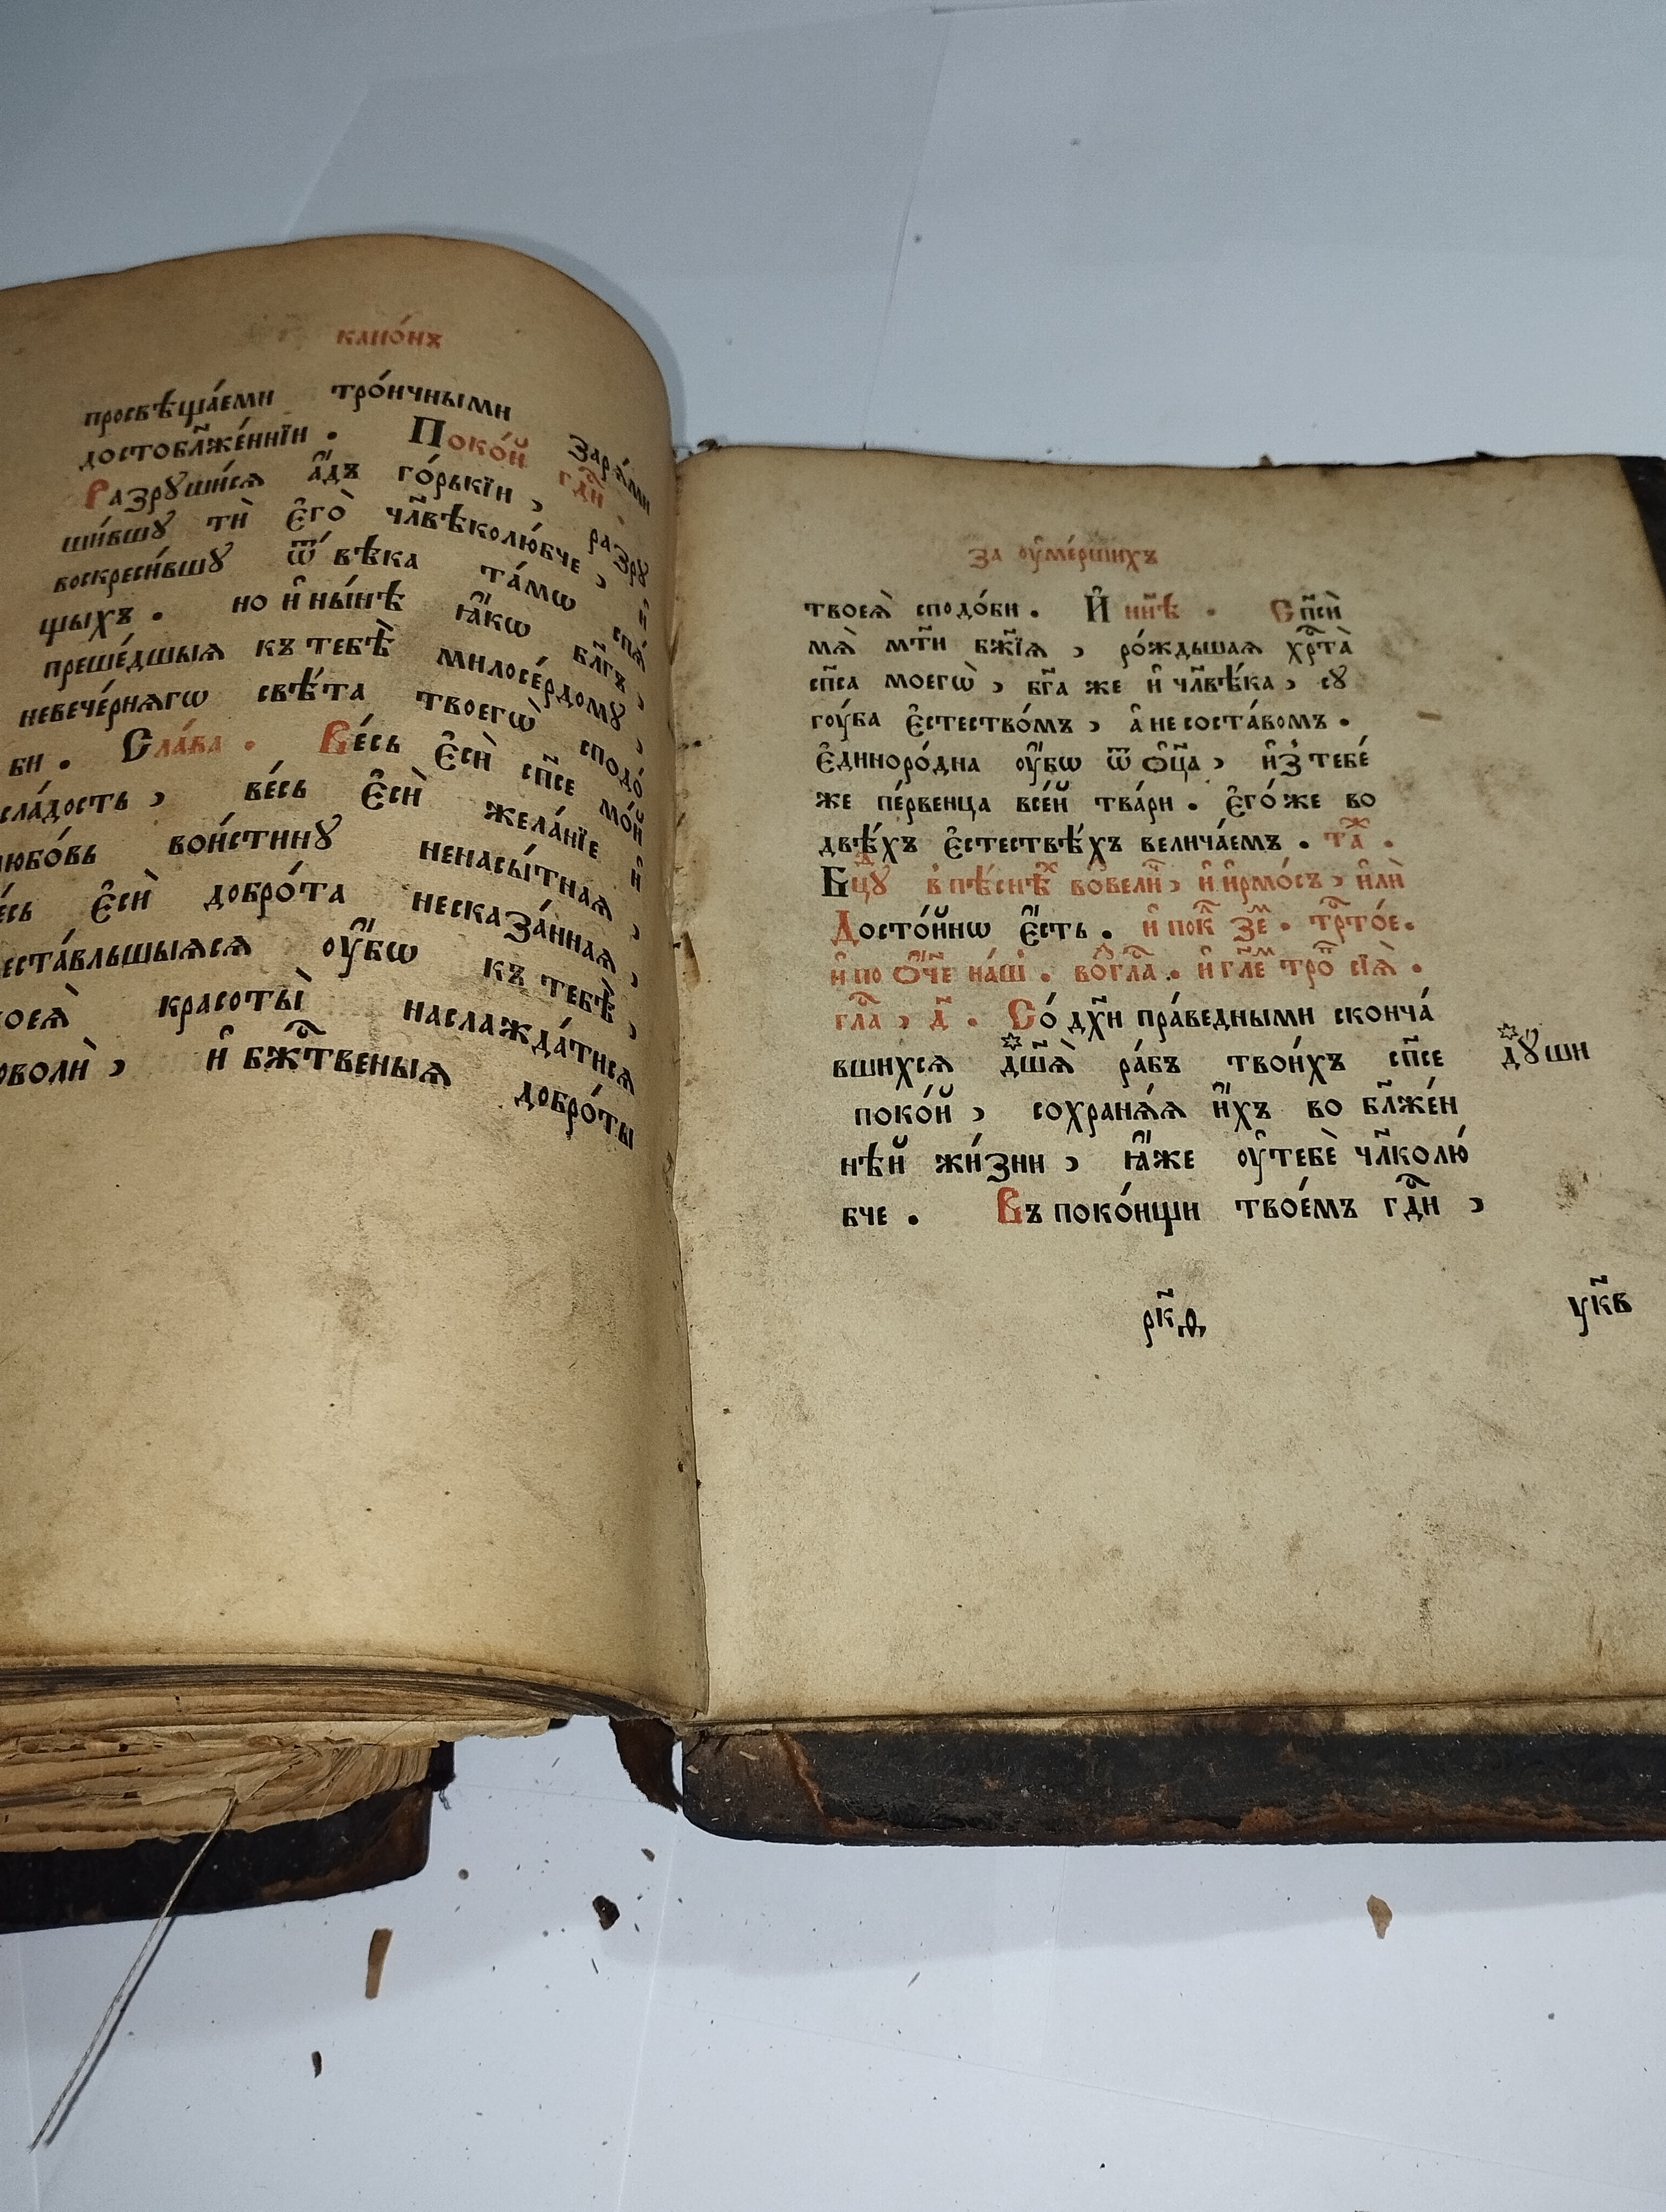 канѡ́нъ
просвѣща́еми тро́ичными зара́ми
достобл҃же́ннїи . Поко́й гдⷭ҇и .
Разрꙋши́сѧ а҆́дъ го́рькїи , разрꙋ
ши́вшꙋ тѝ є҆го̀ чл҃вѣколю́бче , и҆
воскреси́вшꙋ ѿ вѣ́ка та́мѡ спѧ́
щыхъ . но и҆ ны́нѣ ꙗ҆́кѡ бл҃гъ ,
преше́дшыѧ къ тебѣ̀ милосе́рдомꙋ ,
невече́рнѧгѡ свѣ́та твоегѡ̀ сподо́
би . Сла́ва . Ве́сь є҆сѝ сп҃се мо́й
сла́дость , ве́сь є҆сѝ жела́нїе и҆
юбо́вь вои́стинꙋ ненасы́тнаѧ ,
е́сь є҆сѝ добро́та несказа́ннаѧ ,
еста́вльшыѧсѧ ᲂу҆́бѡ къ тебѣ̀ ,
оеѧ̀ красоты̀ наслажда́тисѧ
оволѝ , и҆ бжⷭ҇твеныѧ добро́ты
за ᲂу҆ме́ршихъ
твоеѧ̀ сподо́би . И҆ нн҃ѣ . Сп҃сѝ
мѧ̀ мт҃и бж҃їѧ , ро́ждьшаѧ хрⷭ҇та̀
сп҃са моегѡ̀ , бг҃а же и҆ чл҃вѣ́ка , сꙋ
гᲂу́ба є҆стество́мъ , а҆ не соста́вомъ .
є҆диноро́дна ᲂу҆́бѡ ѿ ѻ҆ц҃а̀ , и҆з̾ тебе́
же пе́рвенца все́й тва́ри . є҆го́ же во
двѣ́хъ є҆стествѣ́хъ велича́емъ . таⷤ .
Бцⷣꙋ в пѣ́снѣⷯ во́велиⷱ , и҆ и҆рмо́съ , и҆лѝ
Досто́йнѡ є҆́сть . и҆ покⷧ зеⷨ . трⷭ҇то́е .
и҆ по Ѻ҆́ч҃е на́шъ . во́гла . и҆ гл҃еⷨ троⷫ сїѧ̀ .
глⷭа , д҃ . Со́ дх҃и пра́ведными сконча́
вшихсѧ дш҃ѧ̀ ра́бъ твои́хъ сп҃се дꙋши
поко́й , сохранѧ́ѧ и҆́хъ во бл҃же́н
нѣй жи́зни , ꙗ҆́же ᲂу҆ тебѐ чл҃колю́
бче . Въ поко́ищи твое́мъ гдⷭ҇и ,
рк҃д
ук҃в